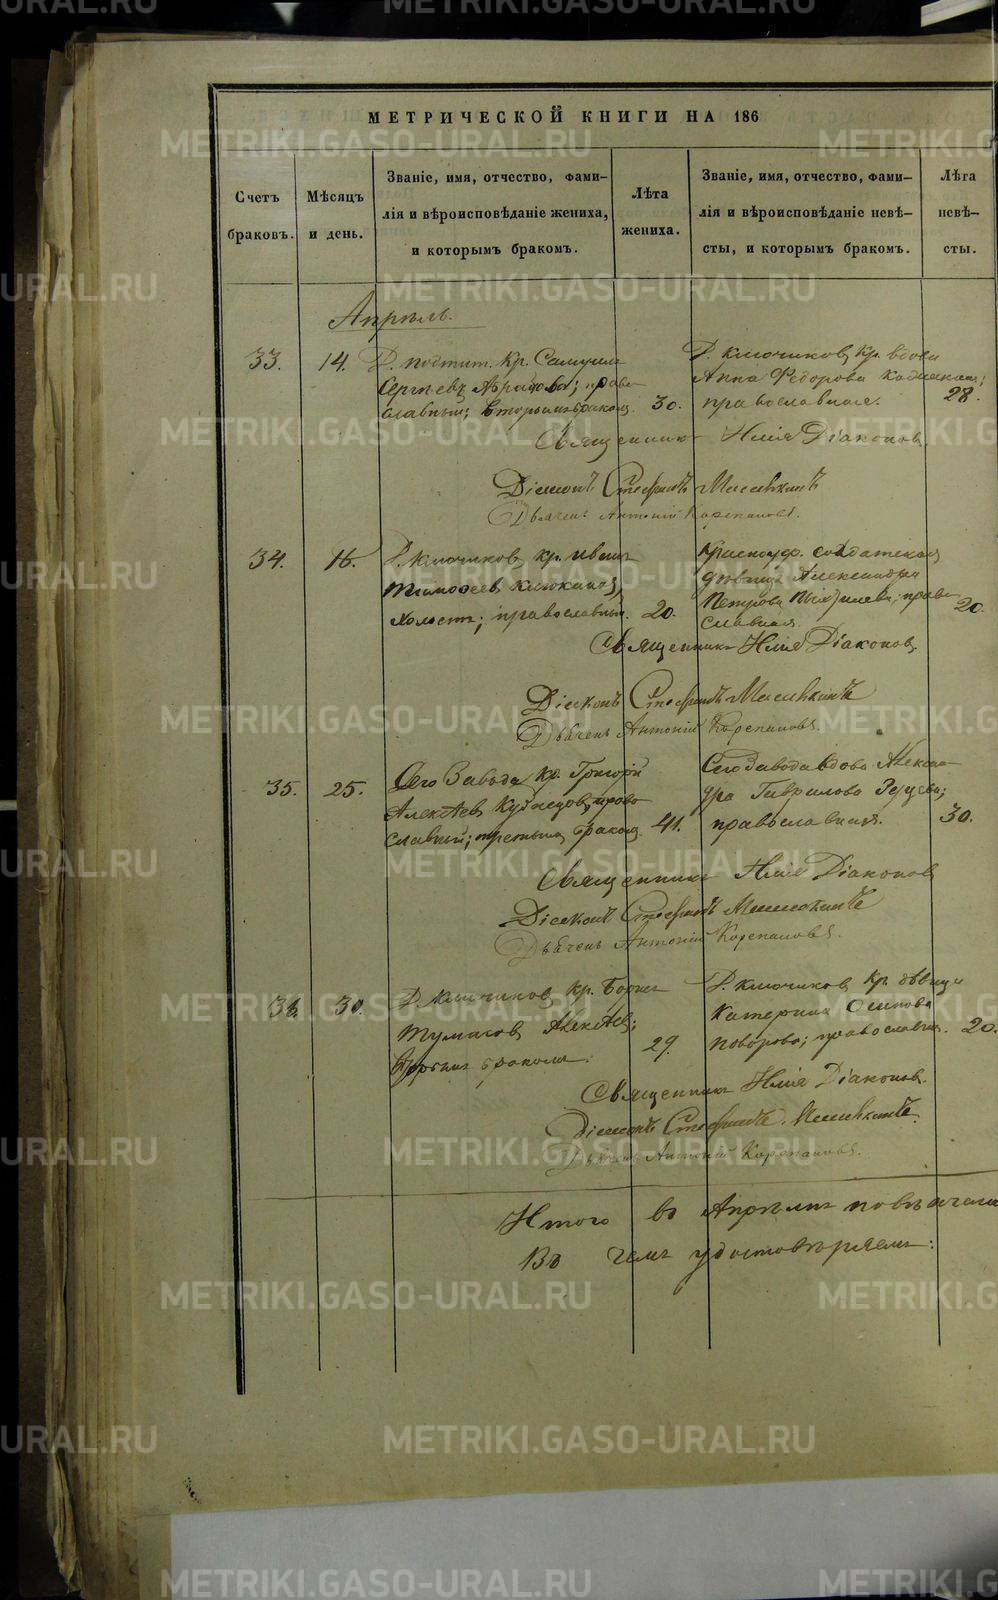 МЕТРИЧЕСКОЙ КНИГИ НА 186
Счетъ браковъ.
Мѣсяцъ и день.
Званіе, имя, отчество, фами-
лія и вѣроисповѣданіе жениха,
и которымъ бракомъ.
Лѣта жениха.
Званіе, имя, отчество, фами-
лія и вѣроисповѣданіе невѣ-
сты, и которымъ бракомъ.
Лѣта невѣ-
сты.
Апрѣль.
33.
14.
Кр. Самуилъ
Сергѣевъ право
славный; вторымъ бракомъ
30.
Д. Ключиков, кр. вдова
Анна Федорова
православная.
28.
Священникъ Илія Діаконов
Діаконъ Стефанъ
Дьячекъ Антоній Корепановъ.
34.
16.
Д. Ключиков, кр. Иванъ
Тимофеев
холостъ; православный.
20.
солдатская
дѣвица Александра
Петрова право
славная
20.
Священникъ Илія Діаконов
Діаконъ Стефанъ
Дьячекъ Антоній Корепановъ.
35.
25.
Сего Завода кр. Григорій
Алексѣев Кузнецов, право
славный; третьимъ бракомъ
41.
Сего Завода вдова Алексан
дра Гаврилова
православная.
30.
Священникъ Илія Діаконов
Діаконъ Стефанъ
Дьячекъ Антоній Корепановъ.
36.
30.
Д. Ключиков, кр. Борисъ
Тумасов Алексѣев;
бракомъ
29.
Д. Ключиков, кр. дѣвица
Катерина Осипова
православная.
20.
Священникъ Илія Діаконов.
Діаконъ Стефанъ
Дьячекъ Антоній Корепановъ.
Итого въ Апрѣлѣ повѣнчано
Въ чемъ удостовѣряемъ:
METRIKI.GASO-URAL.RU